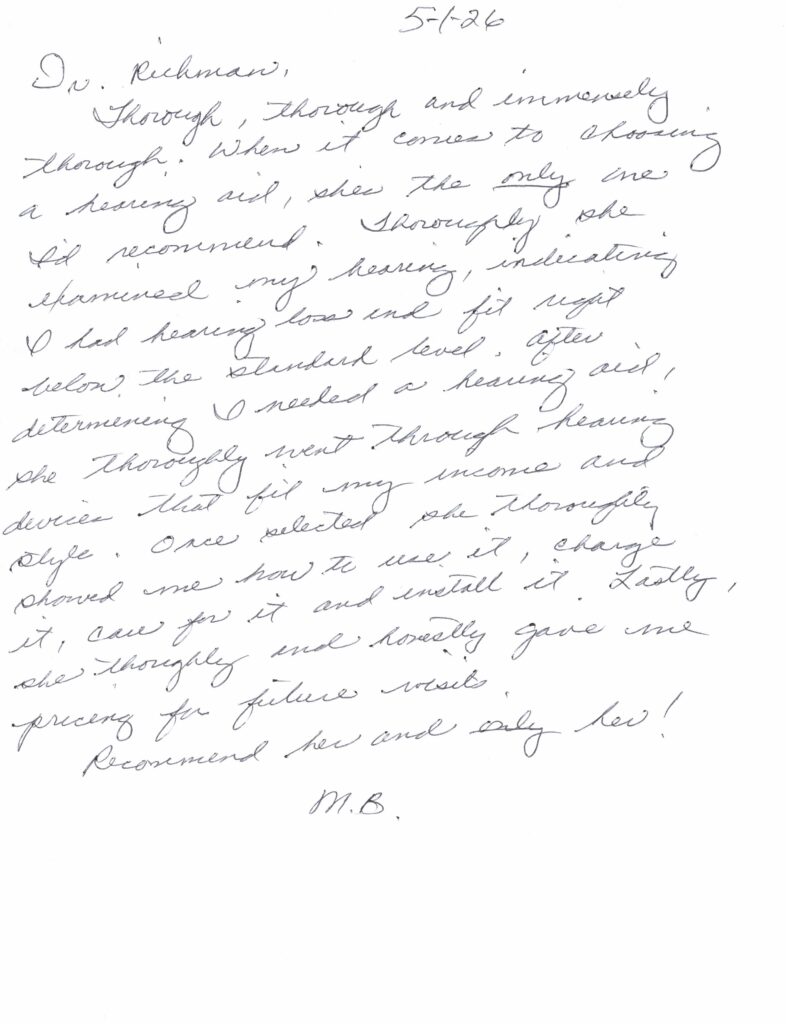 5-1-26
Dr. Richman,
Thorough, thorough and immensely
thorough. When it comes to choosing
a hearing aid, shes the only one
I'd recommend. Thoroughly she
examined my hearing, indicating
I had hearing loss and fit right
below the standard level. After
determening I needed a hearing aid,
she thoroughly went through hearing
devices that fit my income and
style. Once selected she thoroughly
showed me how to use it, charge
it, care for it and install it. Lastly,
she thoroughly and honestly gave me
pricing for future visits.
Recommend her and only her!
M.B.